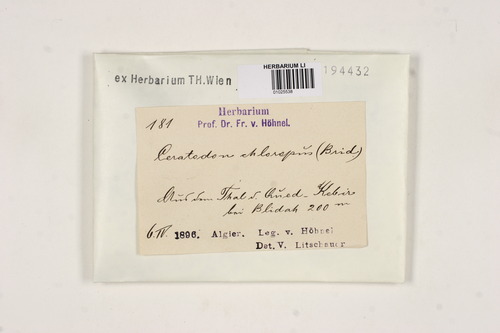 HERBARIUM LI
01025538
194432
ex Herbarium TH.Wien
Herbarium
Prof. Dr. Fr. v. Höhnel.
181
Ceratodon chloropus (Brid)
Aus dem Thal d. Oued-Kebir
bei Blidah 200 m
6/IV. 1896. Algier. Leg. v. Höhnel
Det. V. Litschauer